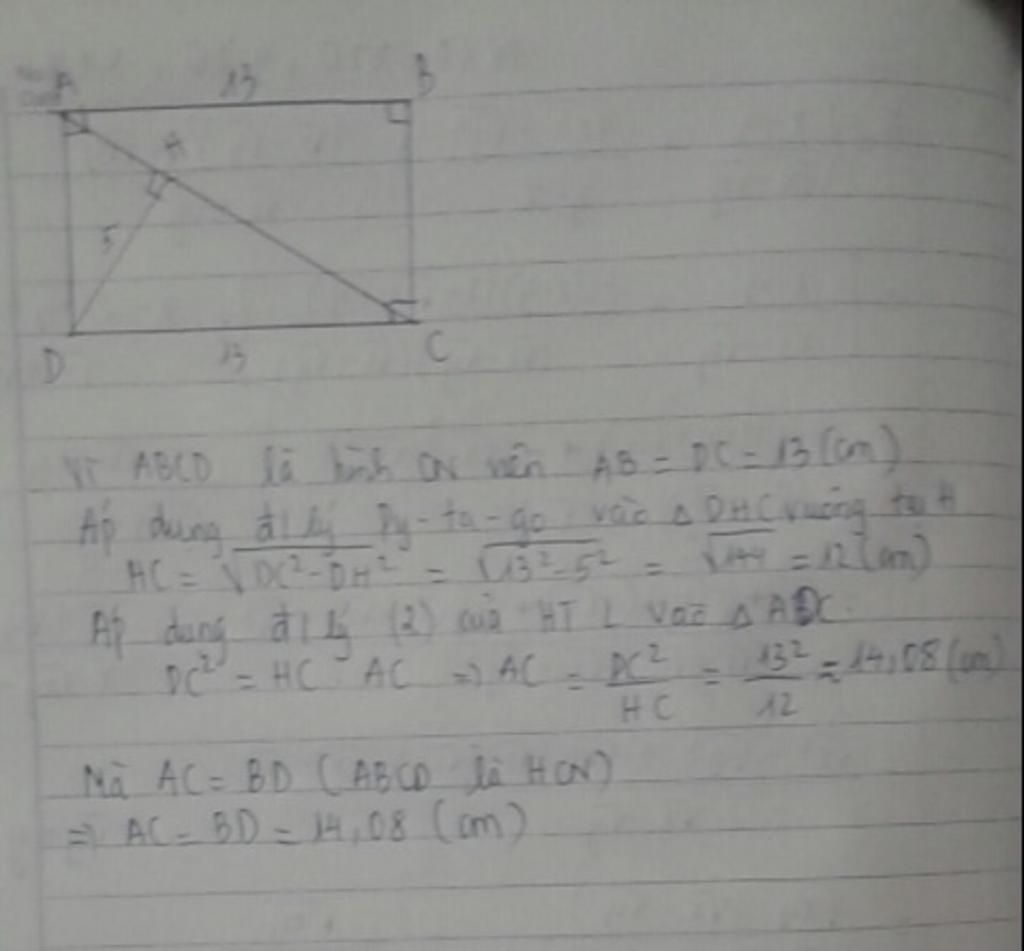 A 13 B
H
5
D 13 C
Vì ABCD là hình CN nên AB = DC = 13 (cm)
Áp dụng đ/lý Py-ta-go vào △ DHC vuông tại H
HC = √DC²-DH² = √13²-5² = √144 = 12 (cm)
Áp dụng đ/lý (2) của HTL vào △ ADC.
DC² = HC AC => AC = DC²/HC = 13²/12 ≈ 14,08 (cm)
Mà AC = BD (ABCD là HCN)
=> AC = BD = 14,08 (cm)